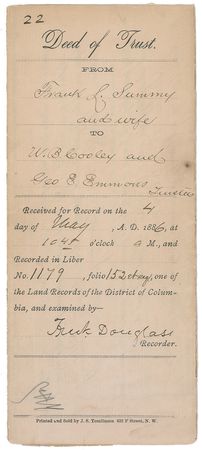 22
Deed of Trust.
FROM
Frank L. Summy
and wife
TO
W. B. Cooley and
Geo E. Emmons
Trustees
Received for Record on the 4
day of May, A. D. 1886, at
10 45 o'clock A M., and
Recorded in Liber
No. 1179, folio 152 et seq, one of
the Land Records of the District of Colum-
bia, and examined by—
Fredk Douglass
Recorder.
Printed and Sold by J. S. Tomlinson 632 F Street, N. W.